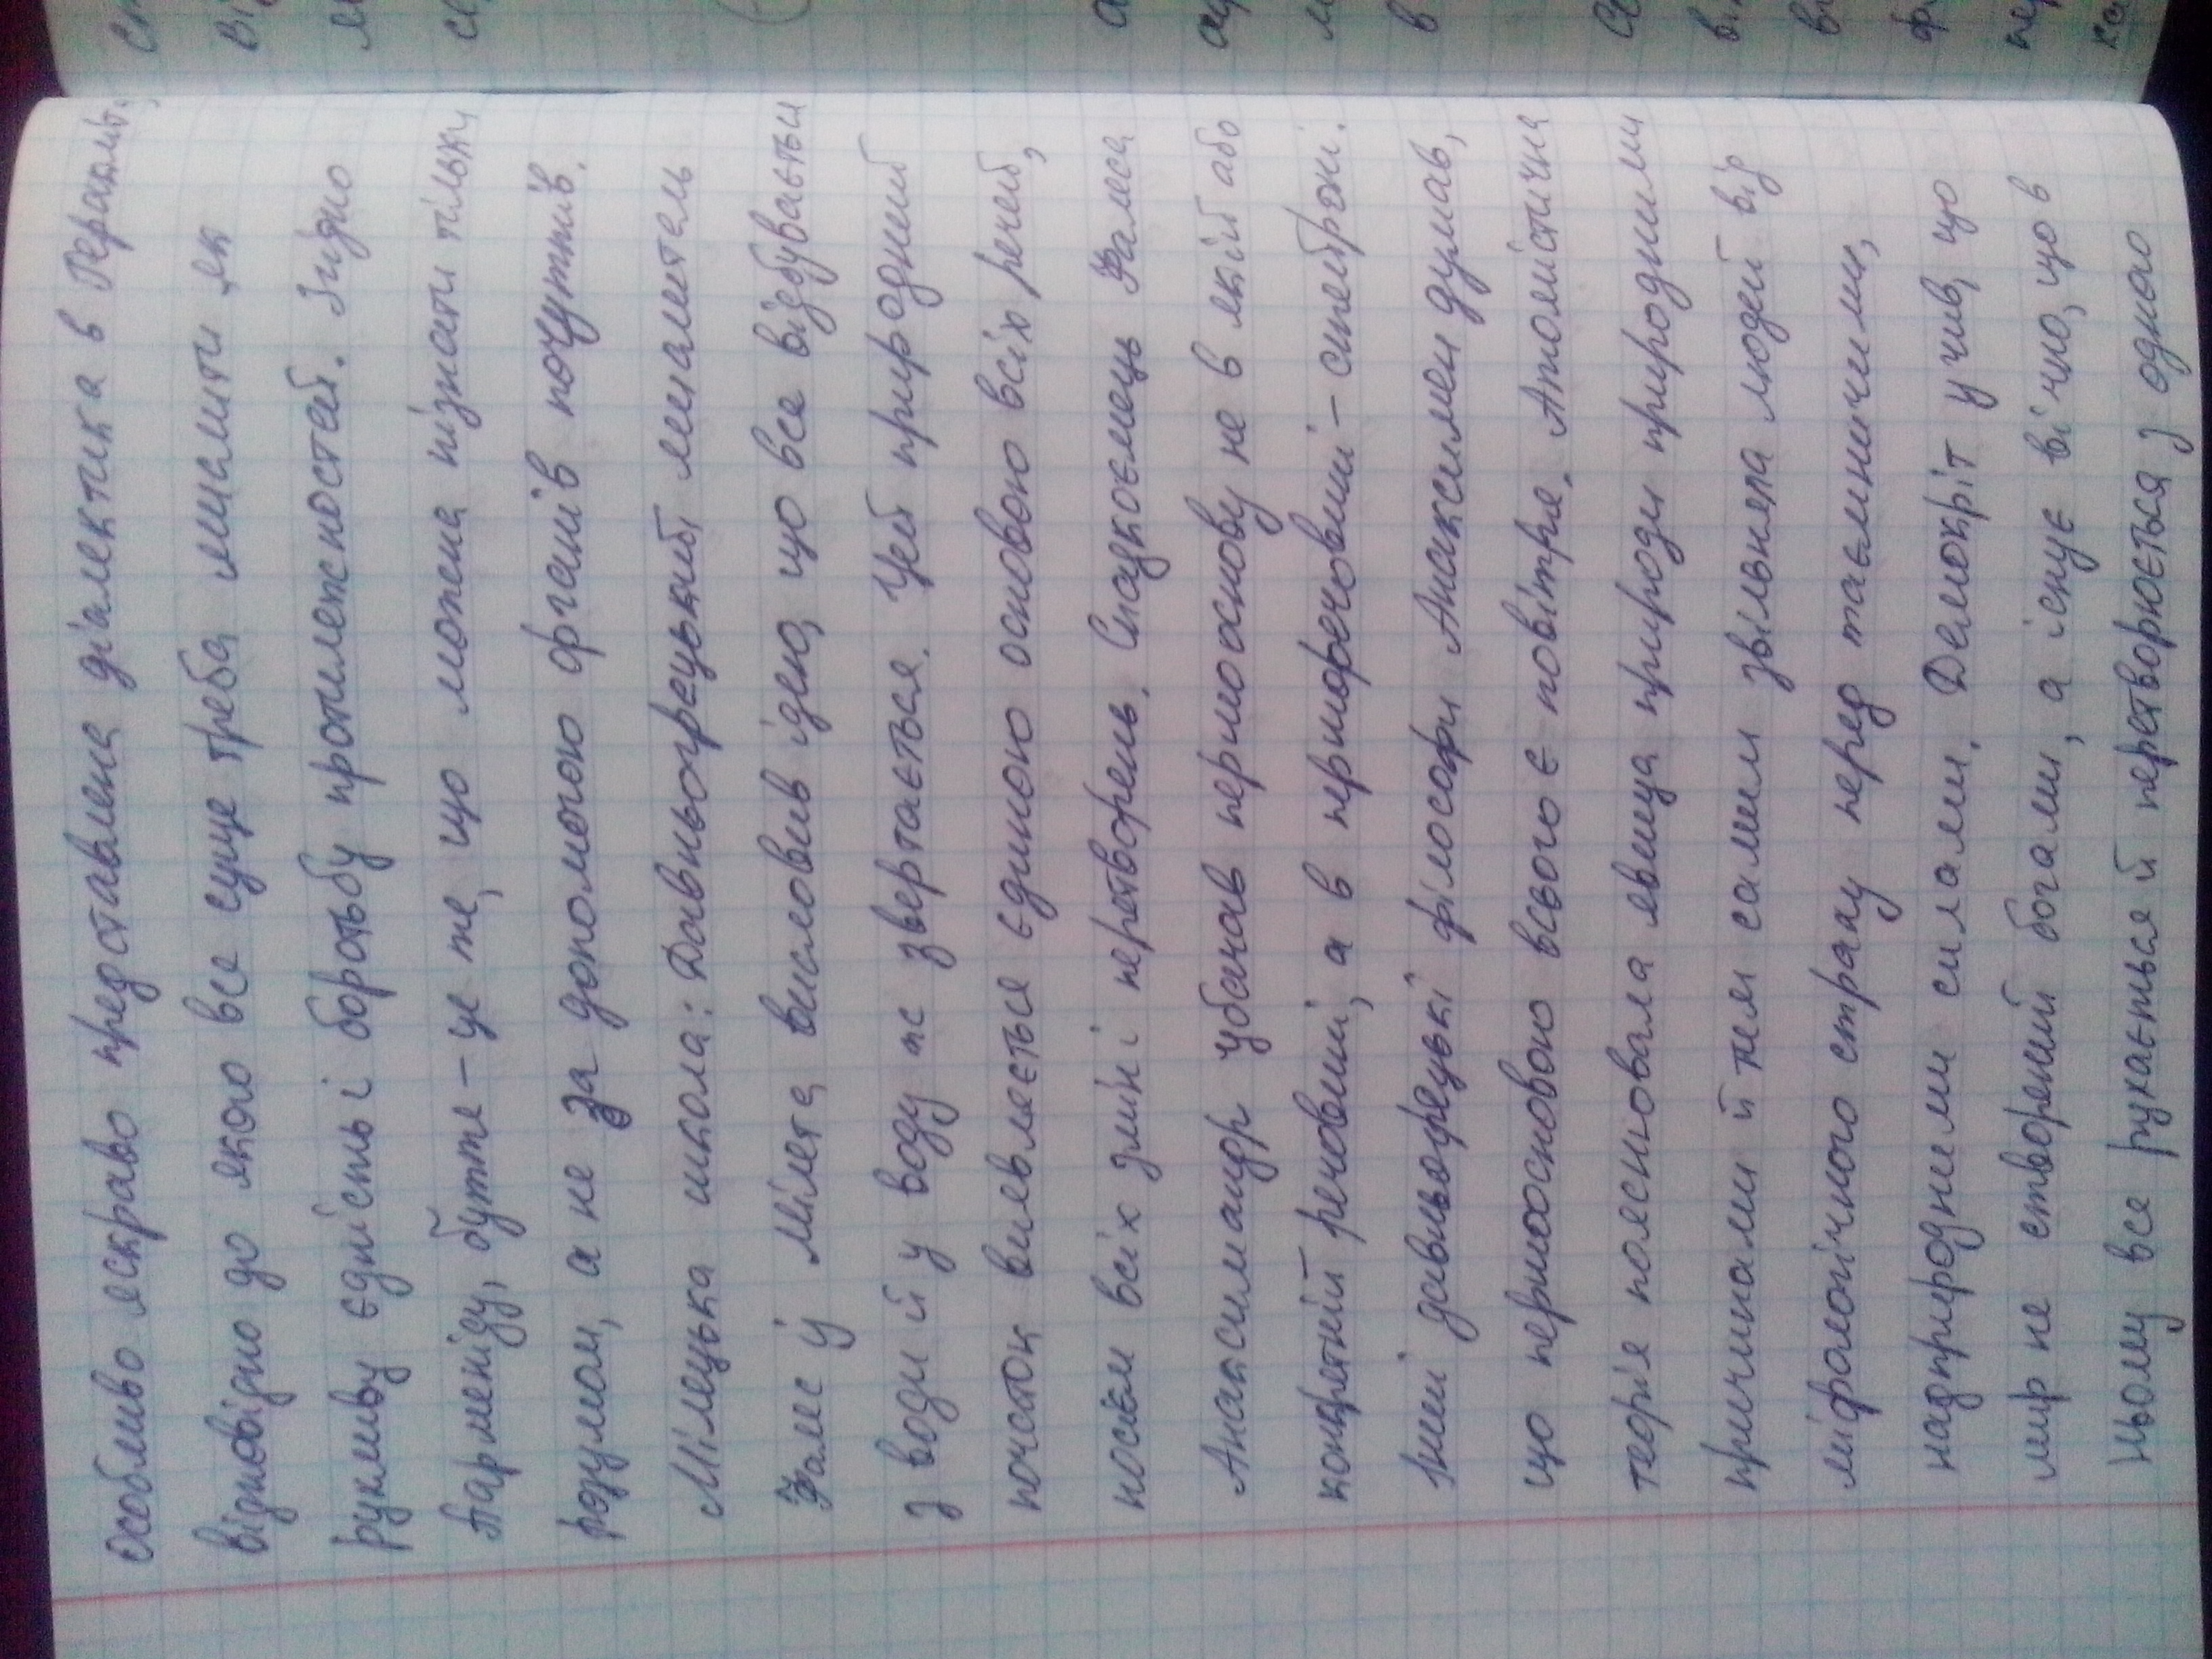 особливо яскраво представлена діалектика в Геракліта,
відповідно до якого все суще треба мислити як
рухливу єдність і боротьбу протилежностей. Згідно
Парменіду, буття – це те, що можна пізнати тільки
розумом, а не за допомогою органів почуттів.
Мілецька школа: Давньогрецький мислитель
Фалес із Мілета висловив ідею, що все відбувається
з води й у воду ж звертається. Цей природний
початок виявляється єдиною основою всіх речей,
носієм всіх змін і перетворень. Спадкоємець Фалеса
Анаксимандр убачав першооснову не в якій або
конкретній речовині, а в першоречовині –
Інші давньогрецькі філософи Анаксимен думав,
що першоосновою всього є повітря. Атомістична
теорія пояснювала явища природи природними
причинами й тим самим звільняла людей від
міфологічного страху перед таємничими,
надприродними силами. Демокріт учив, що
мир не створений богами, а існує вічно, що в
ньому все рухається й перетворюється з одного